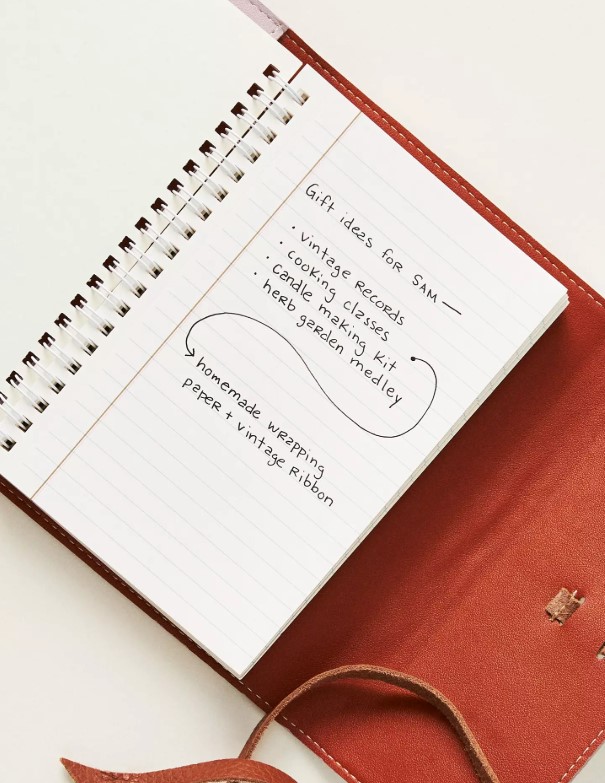 Gift ideas for SAM —
• vintage records
• cooking classes
• candle making kit
• herb garden medley
homemade wrapping
paper + vintage ribbon